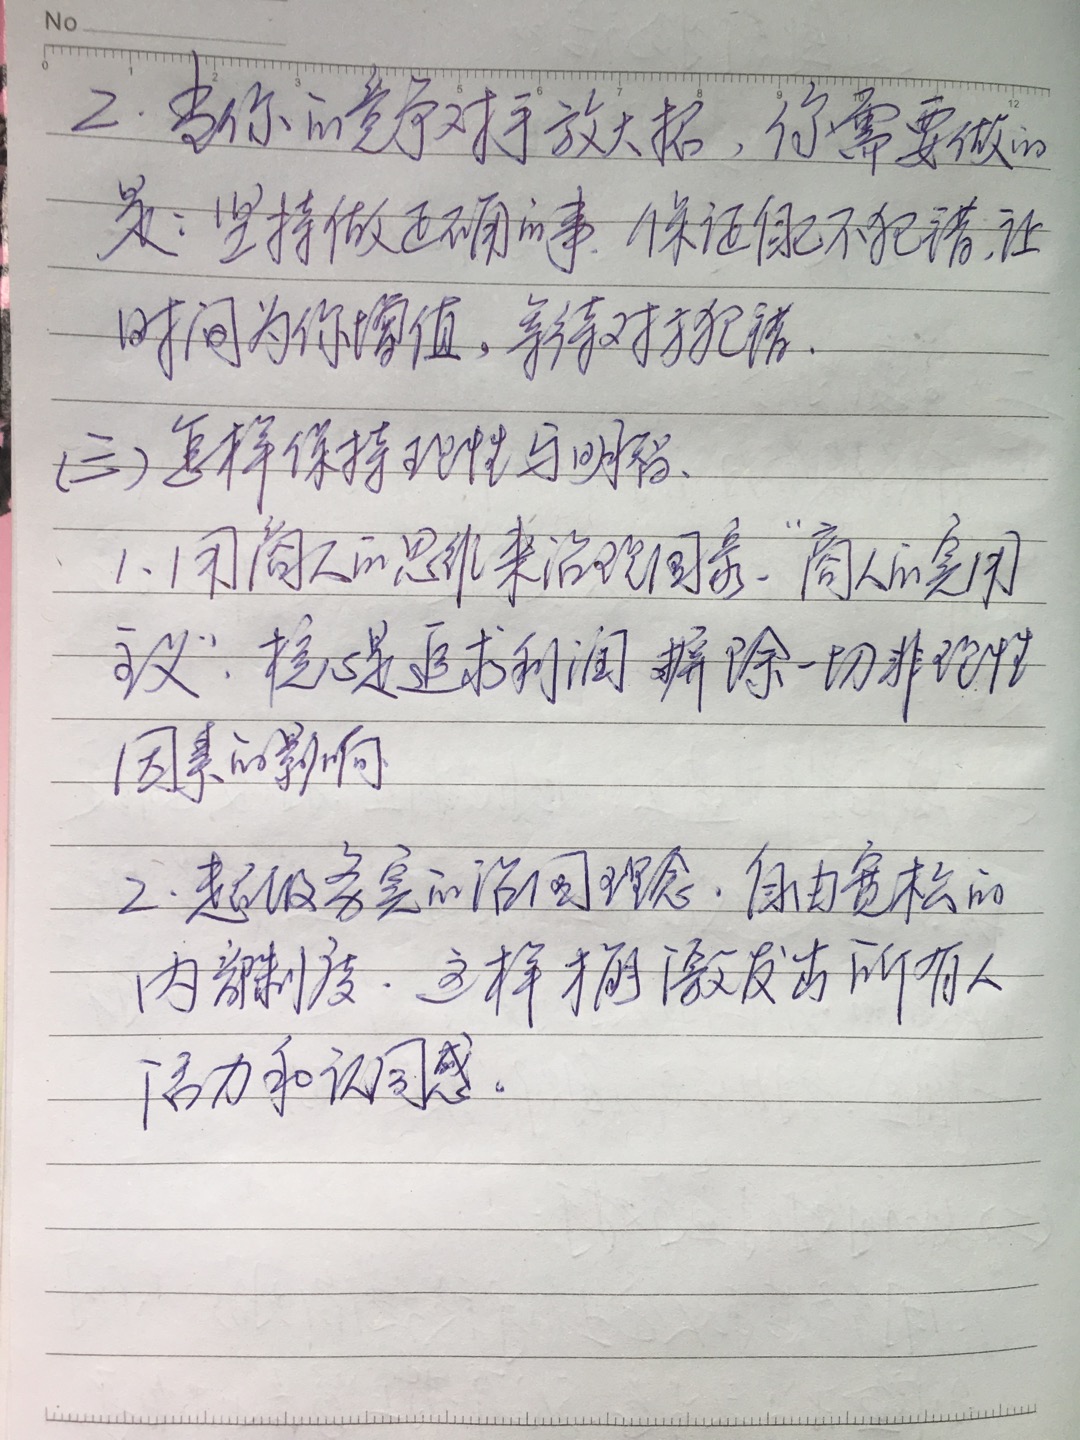 No
0 1 2 3 5 6 7 8 9 12
2. 当你的竞争对手放大招，你需要做的
是：坚持做正确的事. 保证自己不犯错、让
时间为你增值。等待对方犯错.
(三) 怎样保持理性与明智、
1、用商人的思维来治理国家. “商人的实用
主义”. 核心是追求利润 摒除一切非理性
因素的影响
2. 超级务实的治国理念. 自由宽松的
内部制度. 这样才能激发出所有人
活力和认同感。